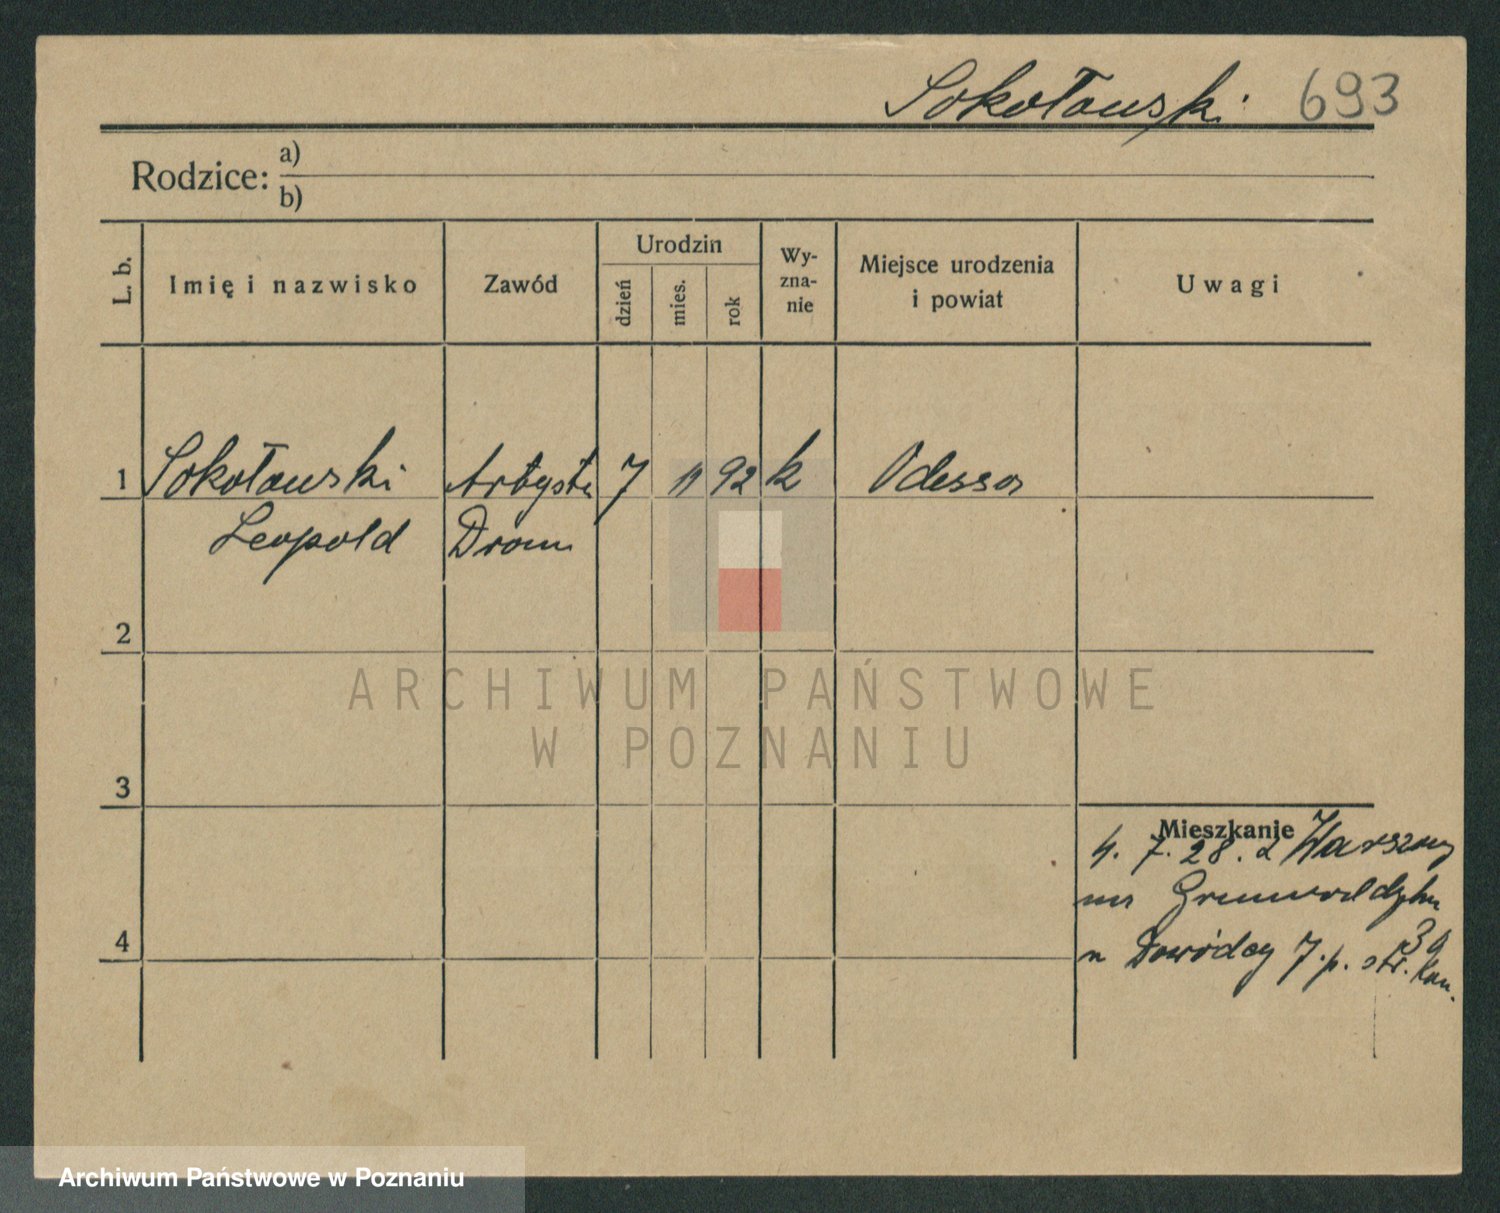 Sokołowski 693
Rodzice: a)
b)
L. b. Imię i nazwisko Zawód Urodzin dzień mies. rok Wy-
zna-
nie Miejsce urodzenia
i powiat Uwagi
1 Sokołowski Artysta 7 11 92 k Odessa
Leopold Dram
2
ARCHIWUM PAŃSTWOWE
W POZNANIU
3
Mieszkanie
4. 7. 28. z Warszawy
na Grunwaldzka
39
4
u Dowódcy 7. p. str. kon.
Archiwum Państwowe w Poznaniu